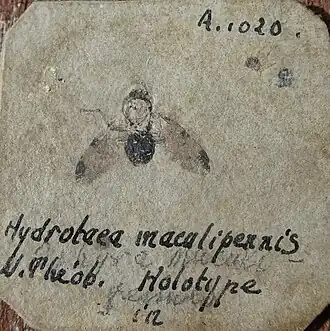 A.1020.
Hydrotaea maculipennis
N. Théob. Holotype